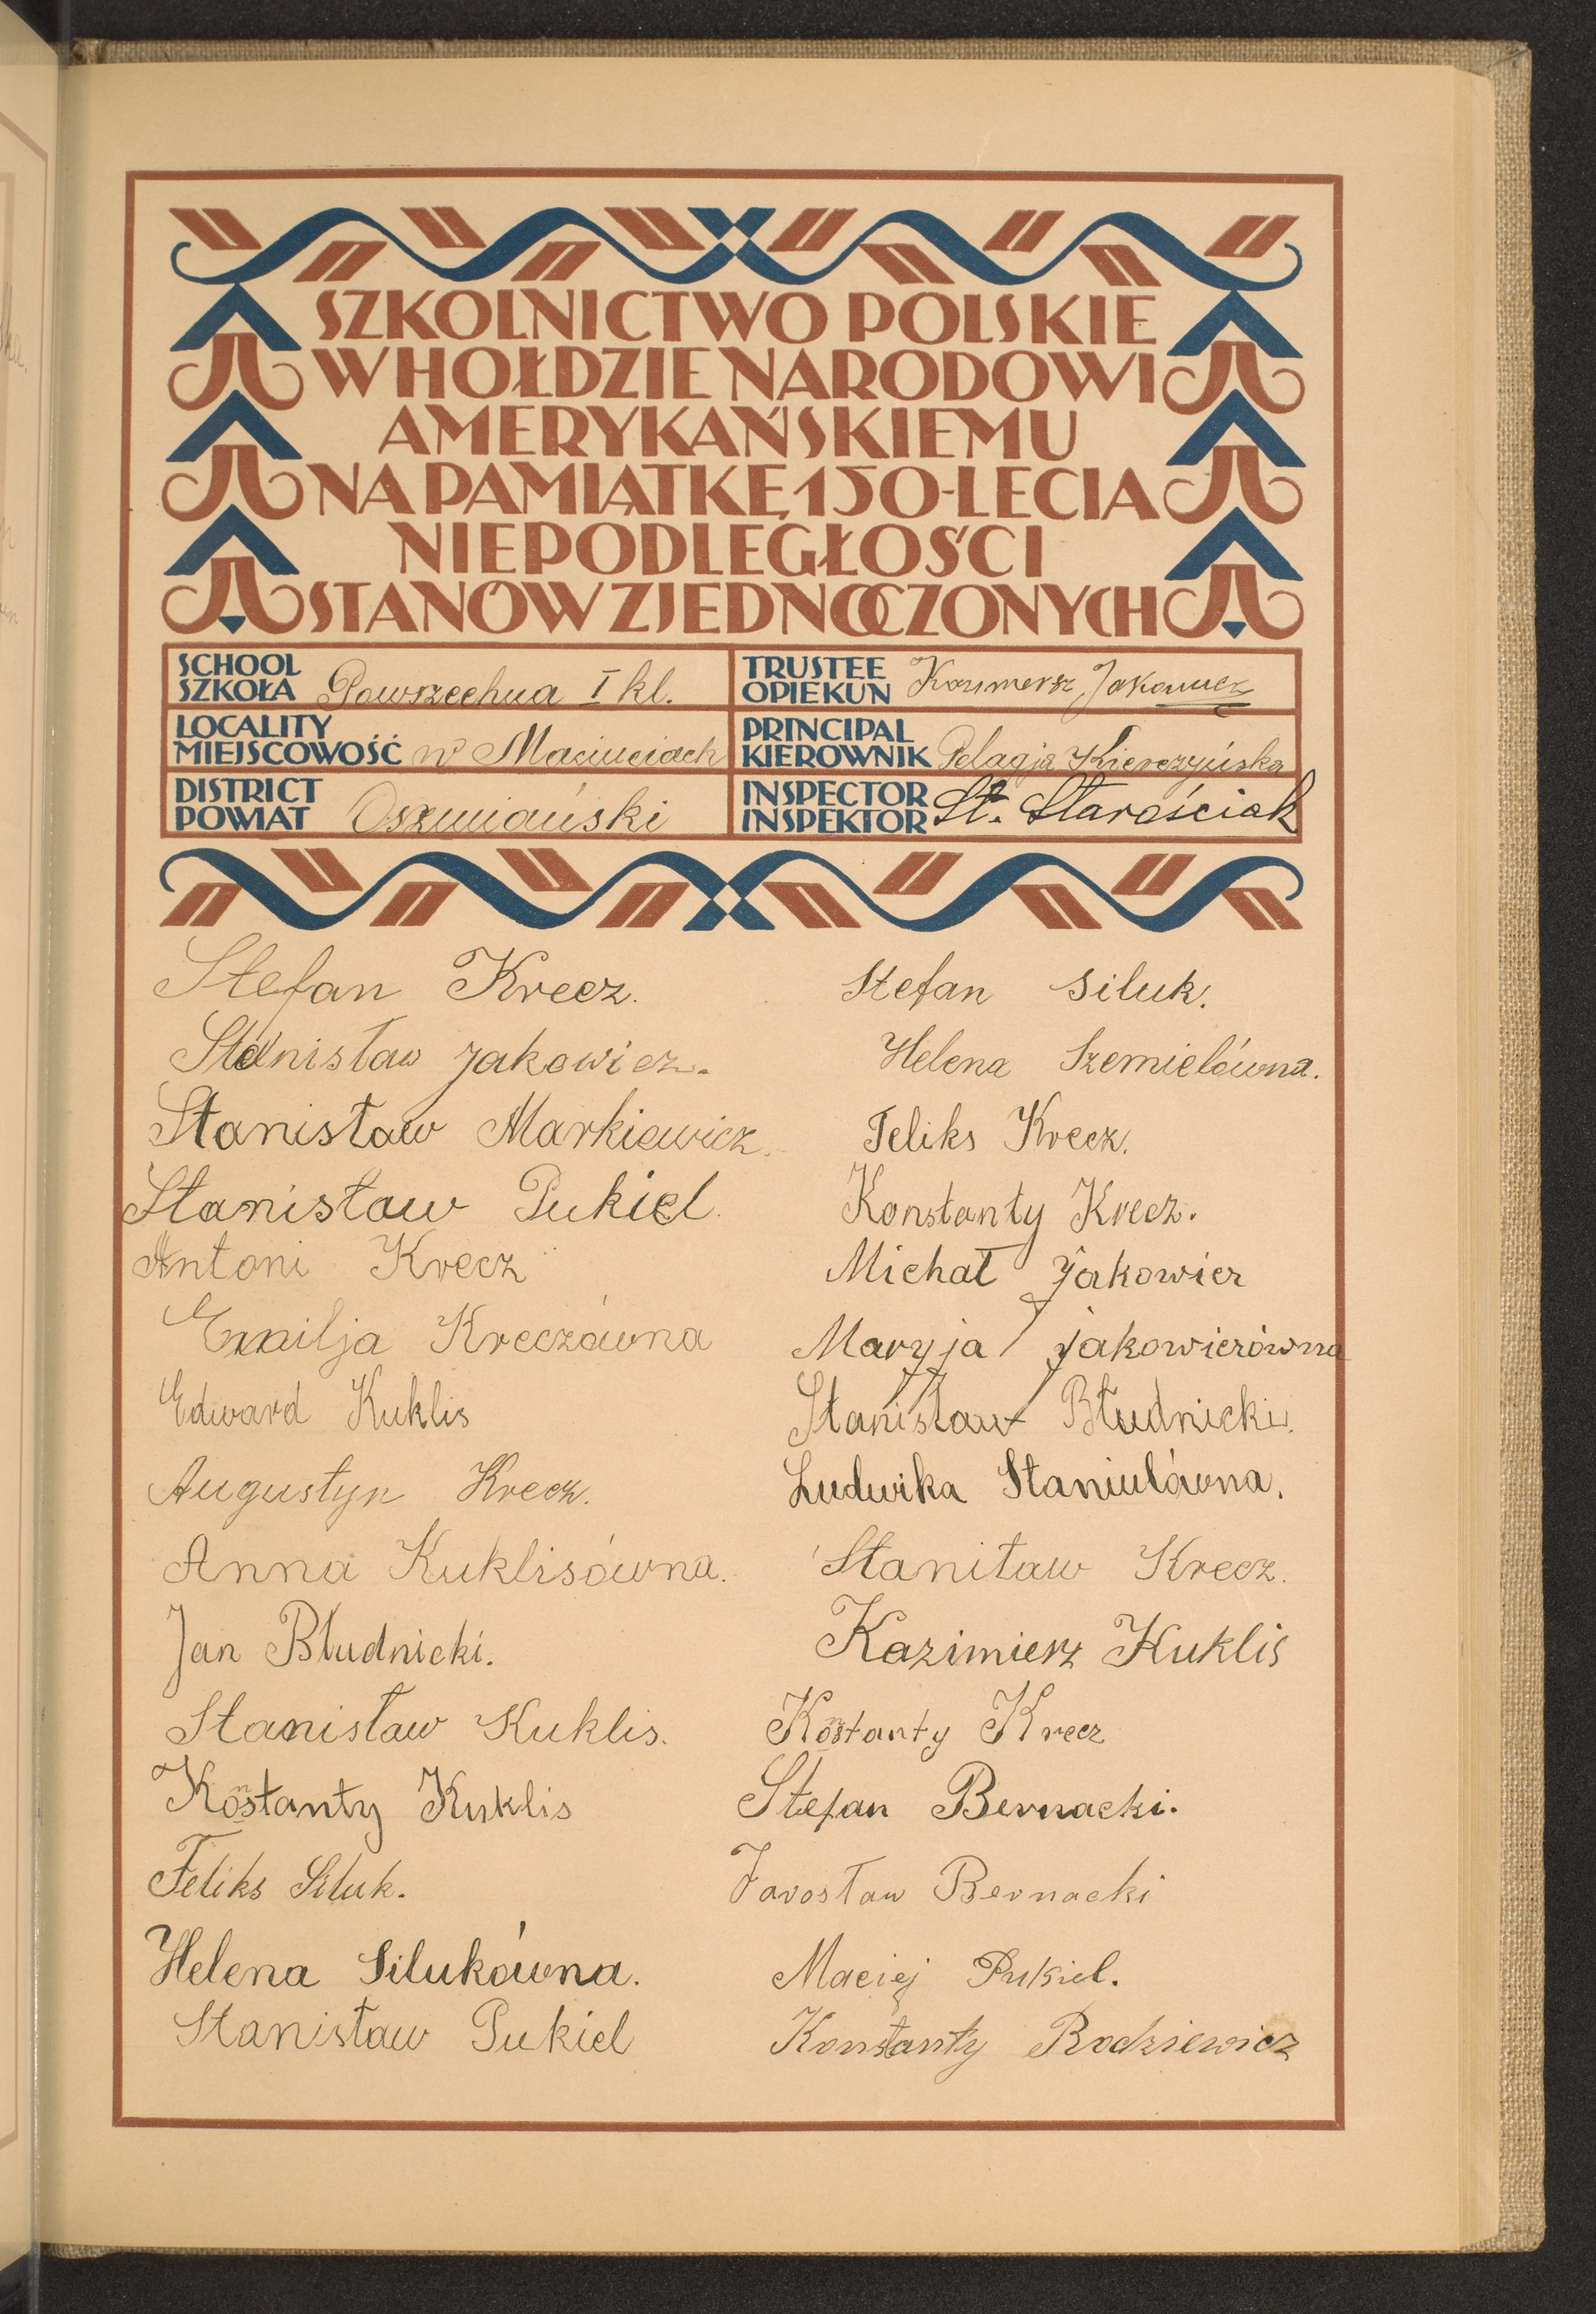 SZKOLNICTWO POLSKIE
W HOŁDZIE NARODOWI
AMERYKAŃSKIEMU
NA PAMIĄTKĘ 150-LECIA
NIEPODLEGŁOŚCI
STANÓW ZJEDNOCZONYCH
SCHOOL
SZKOŁA Powszechna I kl.
TRUSTEE
OPIEKUN Kazimersz Jakowicz
LOCALITY
MIEJSCOWOŚĆ w Maciuciach
PRINCIPAL
KIEROWNIK Pelagja Kierczyńska
DISTRICT
POWIAT Oszmiański
INSPECTOR
INSPEKTOR St. Starościak
Stefan Krecz.
Stanisław Jakowicz.
Stanisław Markiewicz.
Stanisław Pukiel.
Antoni Krecz
Emilja Kreczówna
Edward Kuklis
Augustyn Krecz.
Anna Kuklisówna.
Jan Błudnicki.
Stanisław Kuklis.
Konstanty Kuklis
Feliks Siluk.
Helena Silukówna.
Stanisław Pukiel
Stefan Siluk.
Helena Szemielówna.
Feliks Krecz.
Konstanty Krecz.
Michał Jakowicz
Maryja Jakowiczówna
Stanisław Błudnicki.
Ludwika Staniulówna.
Stanitaw Krecz.
Kazimierz Kuklis
Konstanty Krecz
Stefan Bernacki.
Jarosław Bernacki
Maciej Pukiel.
Konstanty Rodziewicz